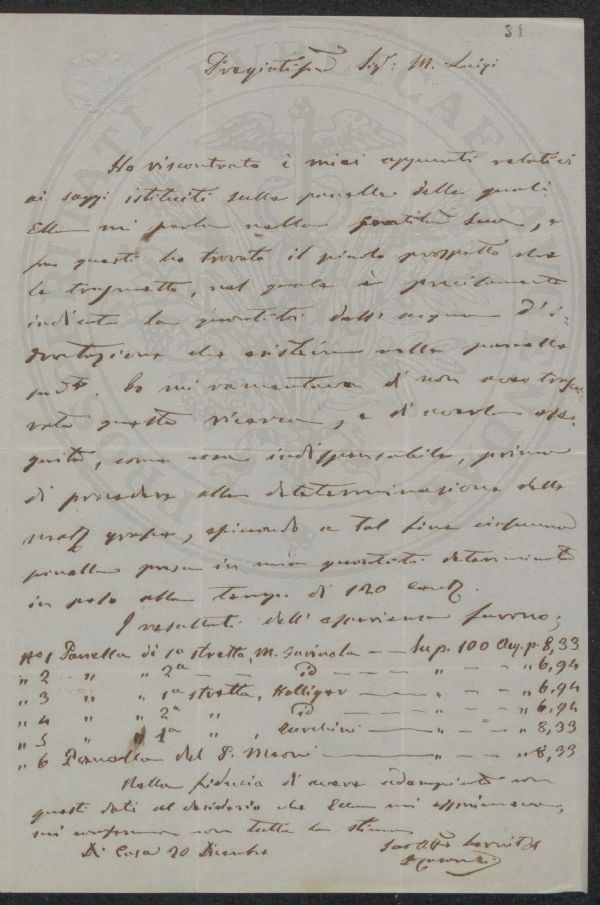 31
Pregiatissmo Sigr: M. Luigi
Ho riscontrato i miei appunti relativi
ai saggi istituiti sulla panella delle quali
Ella mi parla nella gratiss sua, e
fra questi ho trovato il piccolo prospetto che
le trasmetto, nel quale è precisamente
indicata la quantità dell'acqua d'i-
dratazione che esisteva nella panella
sudta. Io mi ramentava di non aver trascu-
rata questa ricerca, e di averla ese-
guita, come cosa indispensabile, prima
di procedere alla determinazione delle
mat grasse, essicando a tal fine ciascuna
panella presa in una quantità determinata
in peso alla temp. di 120 cent.
I resultati dell'esperienza furono;
No 1 Panella di 1a stretta, M. — Su p. 100 Acq. p. 8,33
" 2 " " 2a — id — " — " 6,94
" 3 " " 1a stretta, — " — " 6,94
" 4 " " 2a " id — " — " 6,94
" 5 " " 1a " , — " — " 8,33
" 6 Panella del P. Meoni — " — " 8,33
Nella fiducia di avere adempiuto con
questi dati al desiderio che Ella mi esprimeva,
mi confermo con tutta la stima
Di Casa 20 Dicembre
Suo